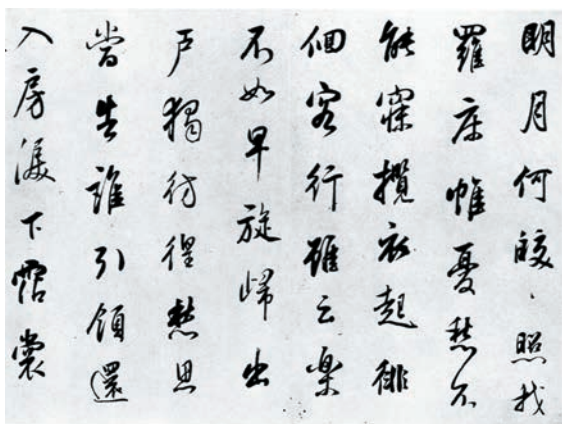 明月何皎々照我
羅床帷憂愁不
能寐攬衣起徘
徊客行雖云樂
不如早旋歸出
戶獨彷徨愁思
當告誰引領還
入房淚下沾裳